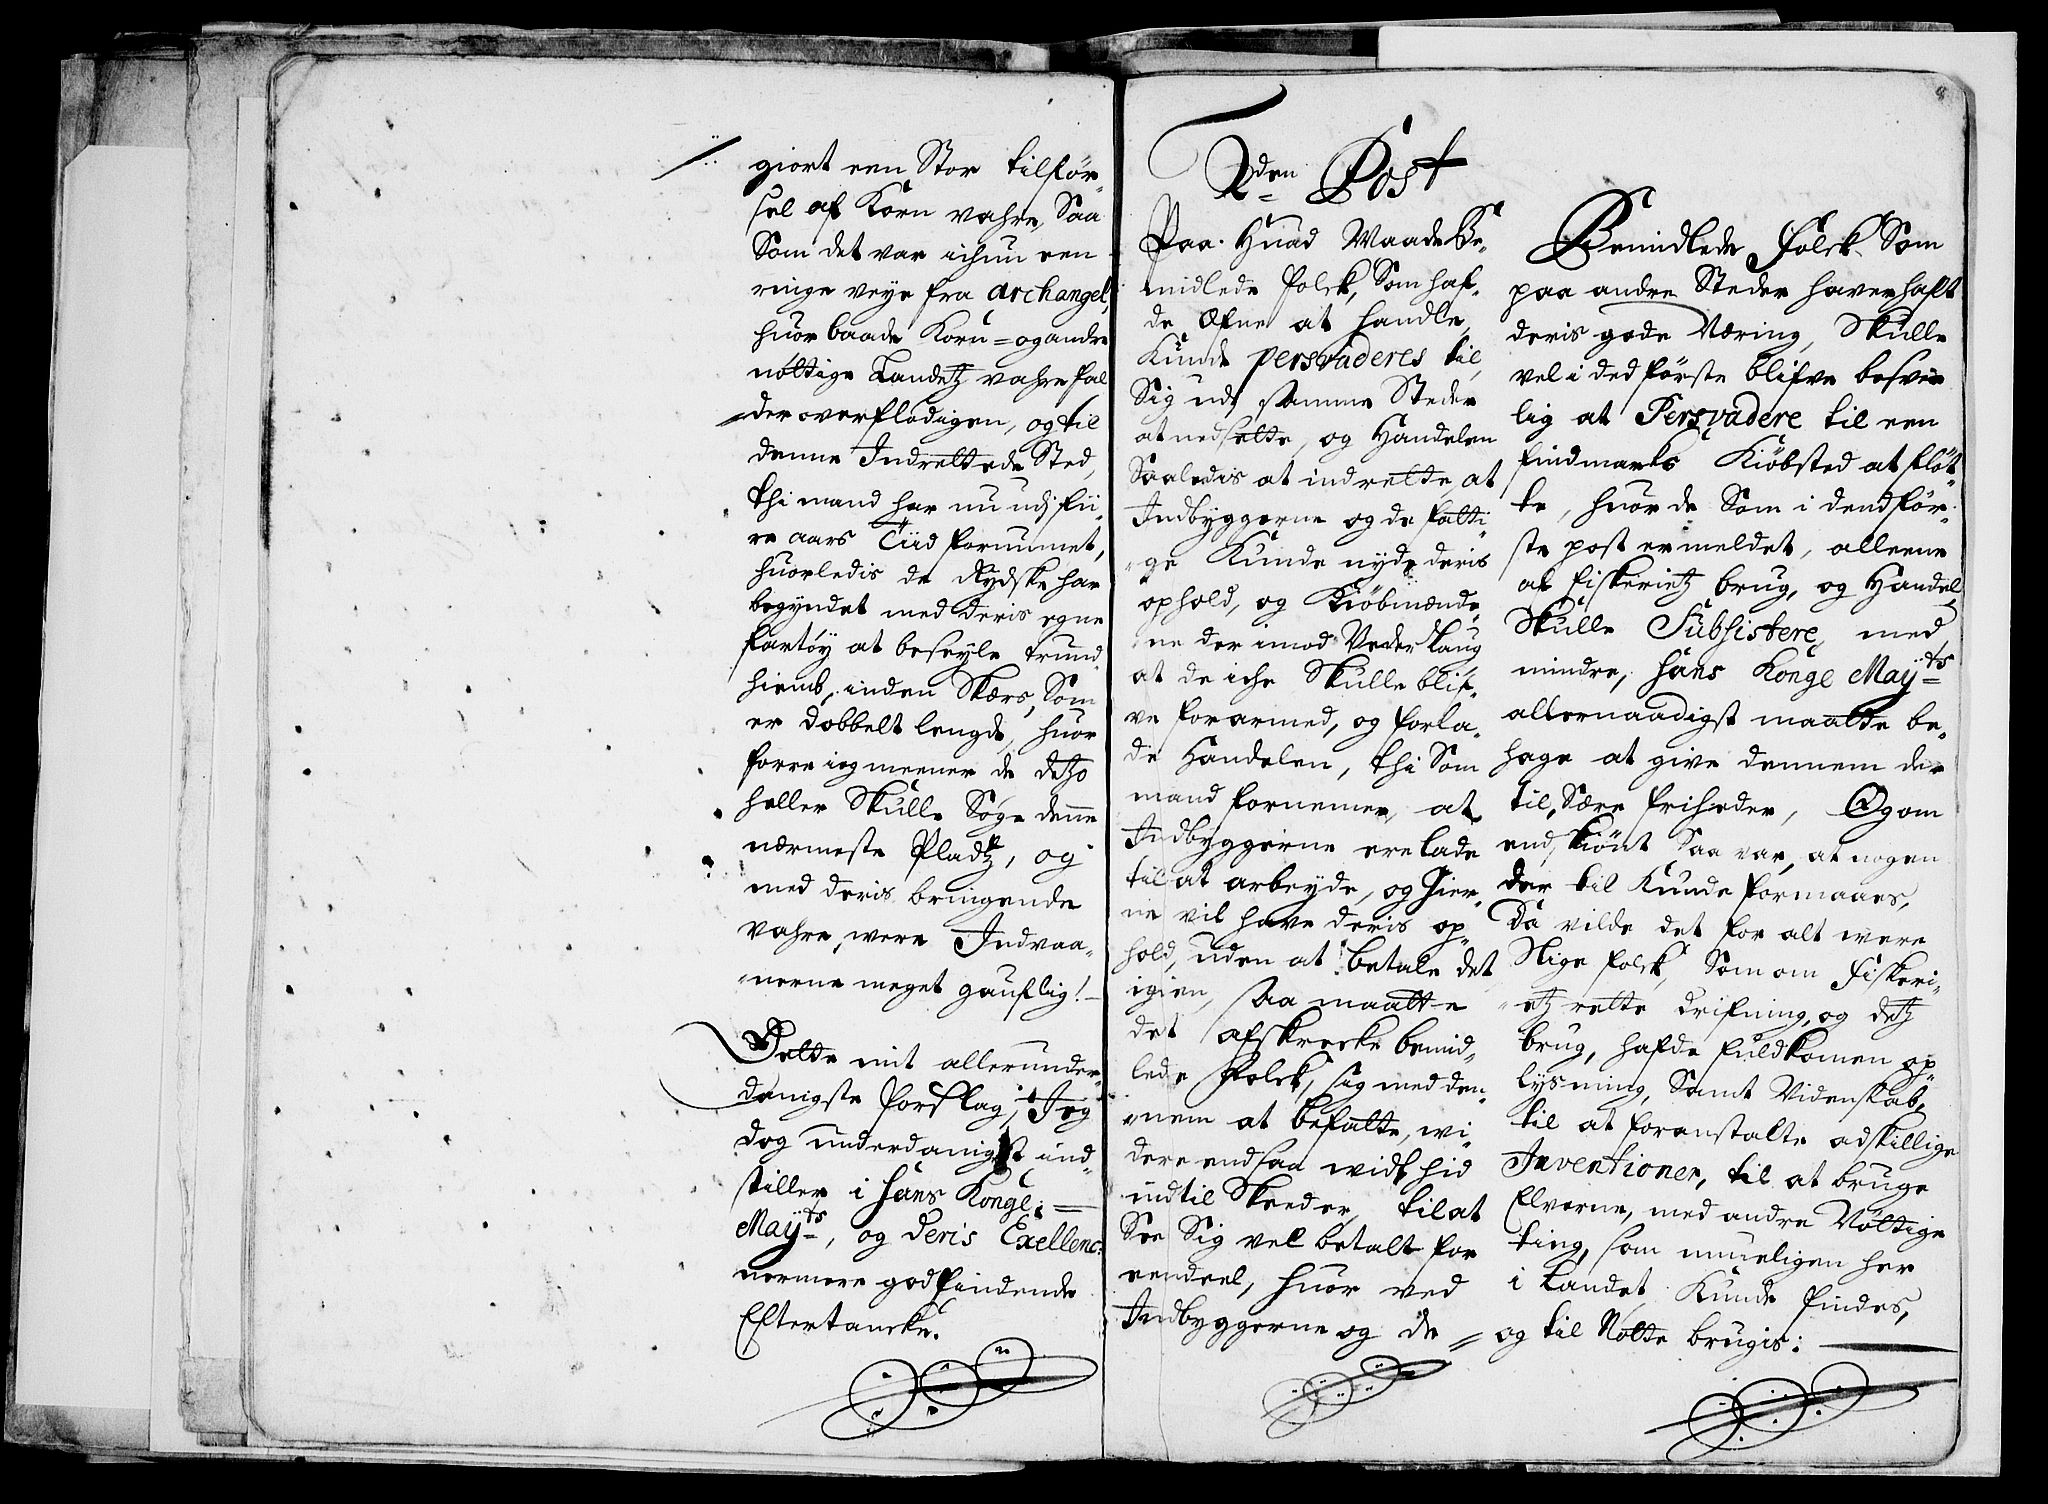 giort een Stor tilför-
sel af Korn vahre, Saa
Som det var ichun een
ringe veye fra Archangel,
huor baade Korn= og andre
nöttige Landetz vahre fal
der overflödigen, og til
denne Indrettede Sted,
thi mand har nu udj fii-
re aars Tiid fornummet,
huorledis de Rydske har
begyndet med deris egne
fartöy at beseyle trund
hiemb, inden Skiærs, Som
er dobbelt lengde, huor
forre ieg meener de detzo
heller Skulle Söge denne
nærmeste Pladtz, og
med deris bringende
vahre, were Indvaa-
nerne meget gaufligl!
Dette mit allerunder-
danigste forslag, Jeg
dog underdanigst ind-
stiller i hans Kongl:
Mayts, og deris Exellenc:
nermere godtfindende
Eftertancke.
8
2den Post
Paa Huad Maade Be-
midlede folck, Som haf-
de Æfne at handle,
Kunde persvaderes til,
Sig udj samme Steder
at nedsette, og Handelen
Saaledis at indrette, at
Indbyggerne og de fatti-
ge Kunde nyde deris
ophold, og Kiöbmænde-
ne der imod Vederlaug
at de iche Skulle blif-
ve forarmed, og forla-
de Handelen, thi Som
mand fornemer, at
Indbyggerne ere lade
til at arbeyde, og Gier-
ne vil have deris op-
hold, uden at betale det
igien, saa maatte
det afskrecke bemid-
lede Folck, sig med den-
nem at befatte, wi-
dere end saa widt hid
indtil Skeeder, til at
See Sig vel betalt for
eendeel, huor ved
Indbyggerne og de =
Bemidlede Folck Som
paa andre Steder haver hafft
deris gode Næring, Skulle
vel i ded förste blifve besvær
lig at Persvadere til een
findmarks Kiöbsted at flöt-
te, huor de Som i dend för-
ste post er meldet, alleene
af fiskerietz brug, og Handel,
Skulle Subsistere, med
mindre, hans Kongl Mayts
allernaadigst maatte be-
hage at give dennem der
til, Sære friheder, Og om
end skiönt Saa var, at nogen
der til Kunde formaaes,
Da vilde det for alt were
Slige folck, Som om fiskeri-
etz rette drifning, og detz
brug, hafde fuldkomen op-
lysning, Samt Videnskab,
til at foranstalte adskillige
Inventioner, til at bruge
Elverne, med andre Nöttige
ting, som mueligen her
i Landet Kunde findes,
og til Nötte brugis: